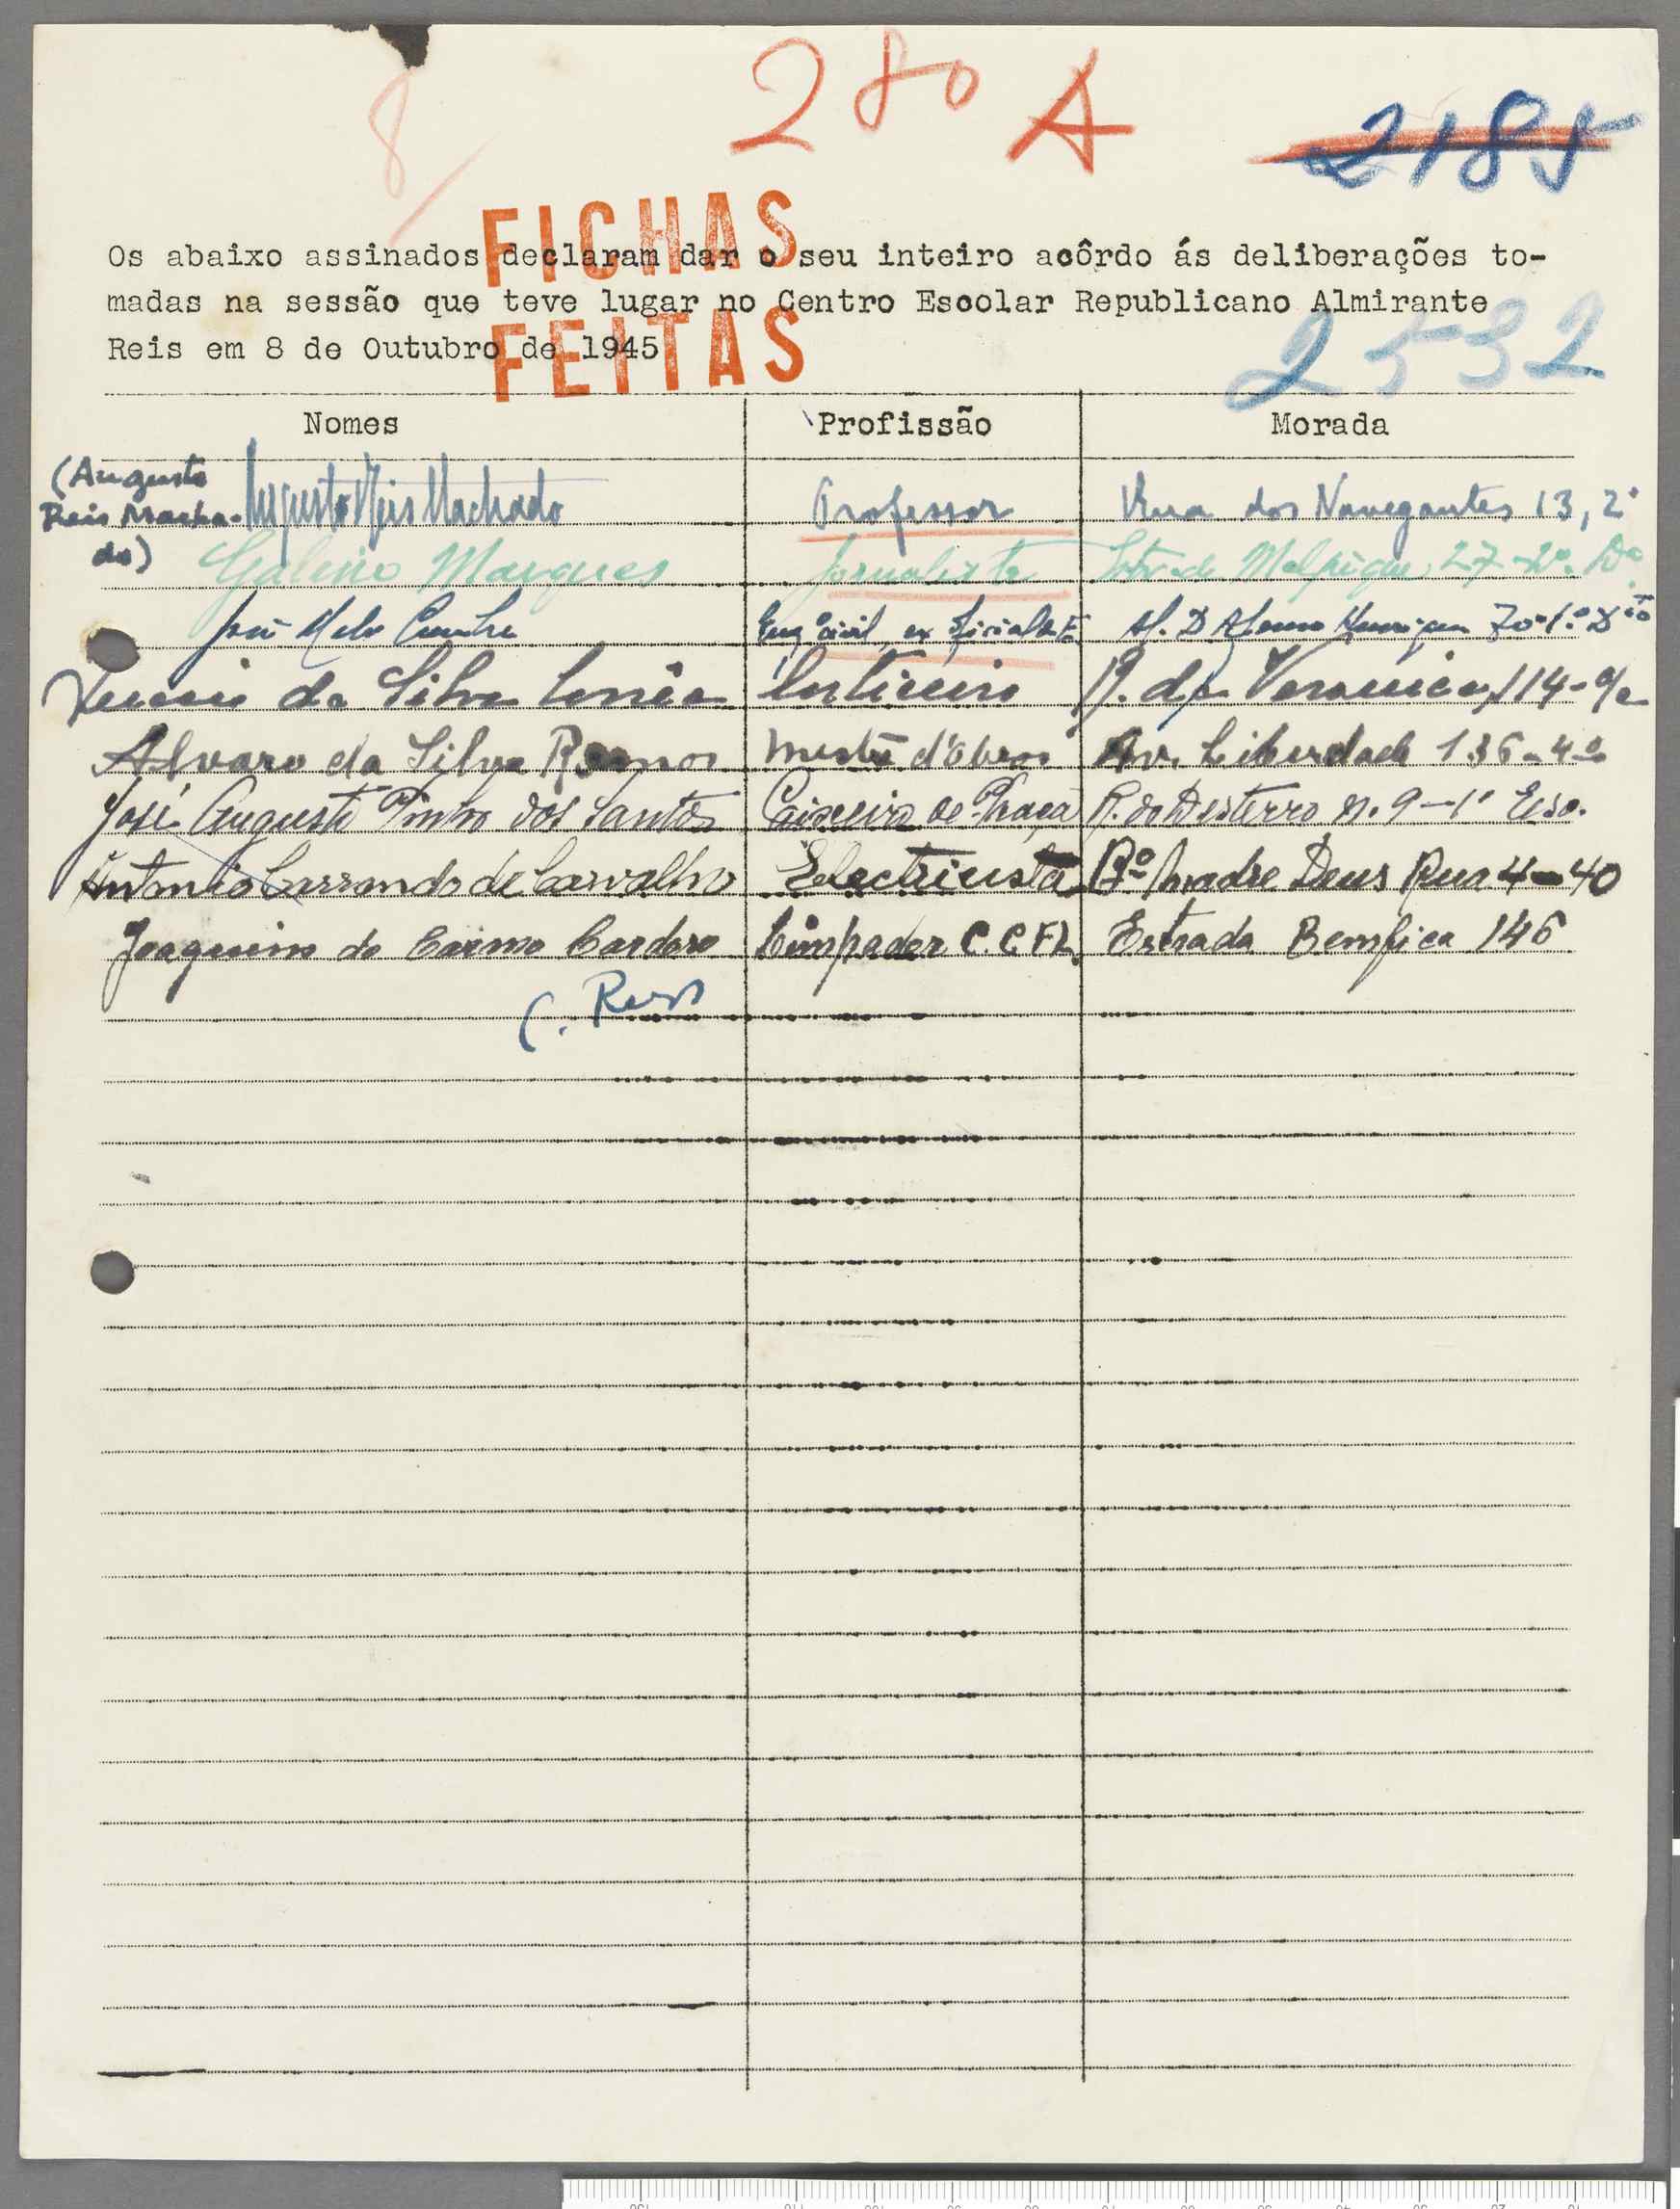 280 A
8/
2185
FICHAS
FEITAS
Os abaixo assinados declaram dar o seu inteiro acôrdo ás deliberações to-
madas na sessão que teve lugar no Centro Escolar Republicano Almirante
Reis em 8 de Outubro de 1945
2532
Nomes Profissão Morada
(Augusto Reis Macha-do) Augusto Reis Machado Professor Rua dos Navegantes 13, 2º
Galeno Marques Jornalista 27-2º. Dº
José Melo Cunha Engº civil, ex oficial Al. D. Afonso Henriques 70-1.º Dtº
da Silva Corrêa Corticeiro R. da Veronica, 114-
Alvaro da Silva Ramos Mestre d'Obras Av. Liberdade 136-4º
José Augusto Pinho dos Santos Caixeiro de Praça R. do Desterro n. 9-1º Esq.
Antonio de Carvalho Electricista Bº Madre Deus Rua 4-40
Joaquim do Carmo Cardoso Limpador C.C.F.L. Estrada Bemfica 146